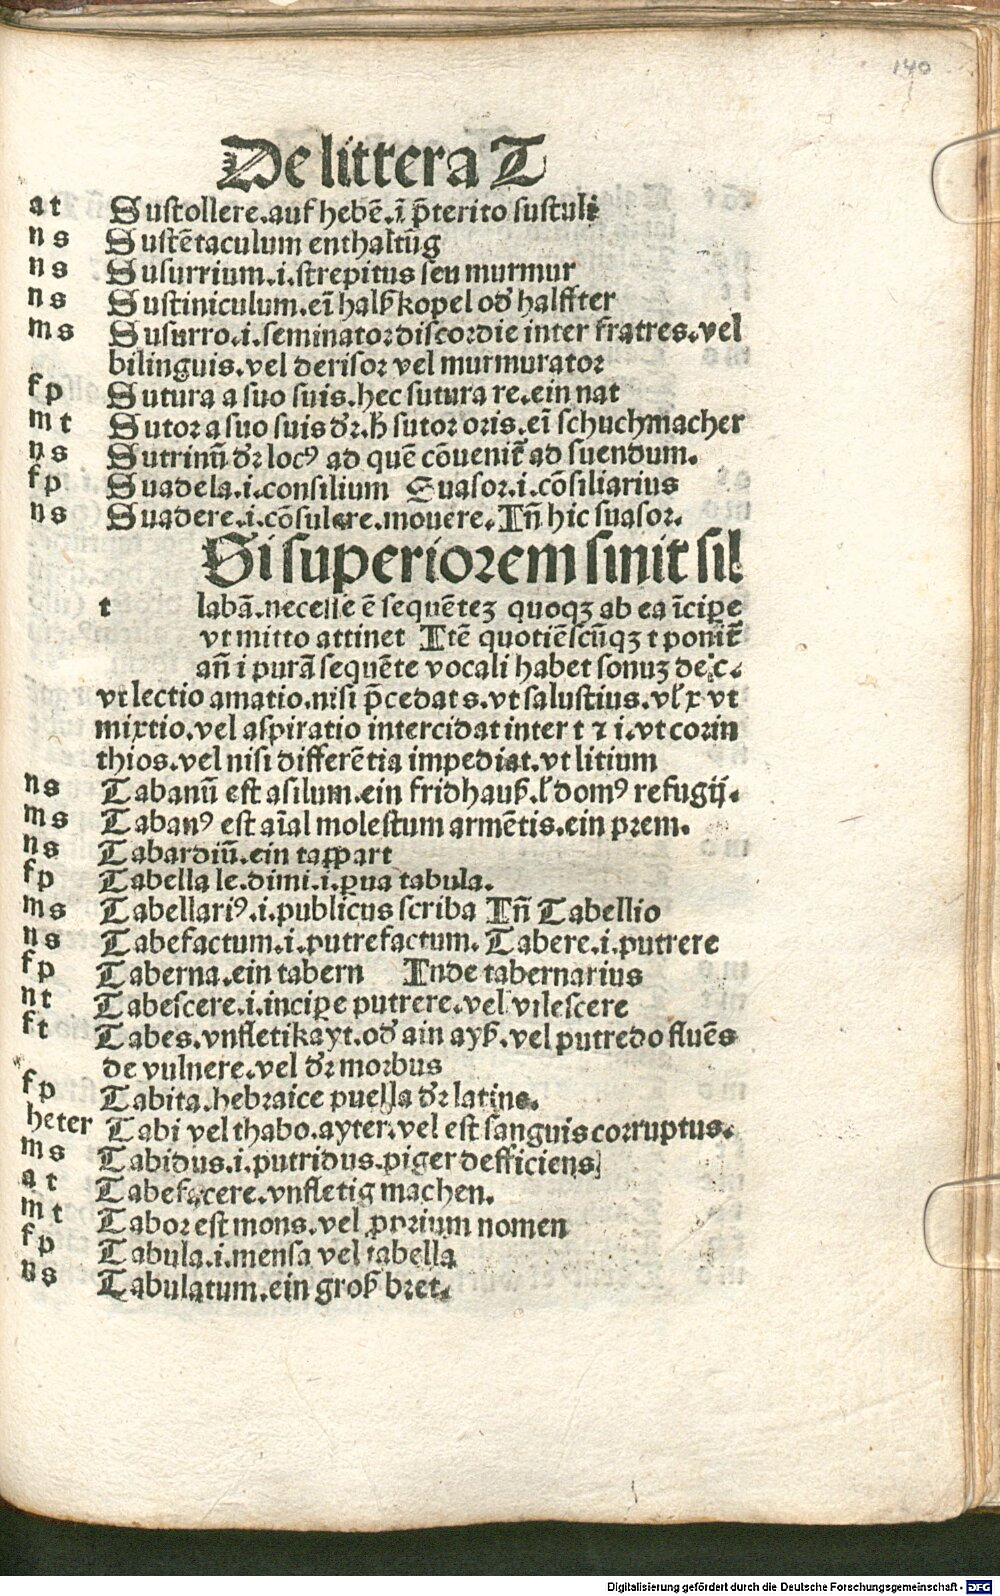 140
De littera T
at Sustollere.auf hebē.ī p̄terito sustuli
ns Sustētaculum enthaltūg
ns Susurrium.i.strepitus seu murmur
ns Sustiniculum.eī halßkopel od̄ halffter
ms Susurro.i.seminator discordie inter fratres.vel
bilinguis.vel derisor vel murmurator
fp Sutura a suo suis.hec sutura re.ein nat
mt Sutor a suo suis dr̄.h̄ sutor oris.eī schuchmacher
ns Sutrinū dr̄ locꝰ ad quē cōuenit̄ ad suendum.
fp Suadela.i.consilium Suasor.i.cōsiliarius
ns Suadere.i.cōsulere.mouere.Iñ hic suasor.
Si superiorem sinit sil
t labā.necesse ē sequēteʒ quoqʒ ab ea īcipe
vt mitto attinet Itē quotiēscūqʒ t ponit̄
añ i purā sequēte vocali habet sonuʒ de.c.
vt lectio amatio.nisi p̄cedat s.vt salustius.vł x vt
mixtio.vel aspiratio intercidat inter t ⁊ i.vt corin
thios.vel nisi differētia impediat.vt litium
ns Tabanū est asilum.ein fridhauß.ł domꝰ refugij.
ms Tabanꝰ est aīal molestum armētis.ein prem.
ns Tabardiū.ein tappart
fp Tabella le.dimi.i.ꝑua tabula.
ms Tabellariꝰ.i.publicus scriba Iñ Tabellio
ns Tabefactum.i.putrefactum.Tabere.i.putrere
fp Taberna.ein tabern Inde tabernarius
nt Tabescere.i.incipe putrere.vel vilescere
ft Tabes.vnfletikayt.od̄ ain ayß.vel putredo fluēs
de vulnere.vel dr̄ morbus
fp Tabita.hebraice puella dr̄ latine.
heter Tabi vel thabo.ayter.vel est sanguis corruptus.
ms Tabidus.i.putridus.piger defficiens
at Tabefacere.vnfletig machen.
mt Tabor est mons.vel ꝓprium nomen
fp Tabula.i.mensa vel tabella
ns Tabulatum.ein groß bret.
Digitalisierung gefördert durch die Deutsche Forschungsgemeinschaft - DFG